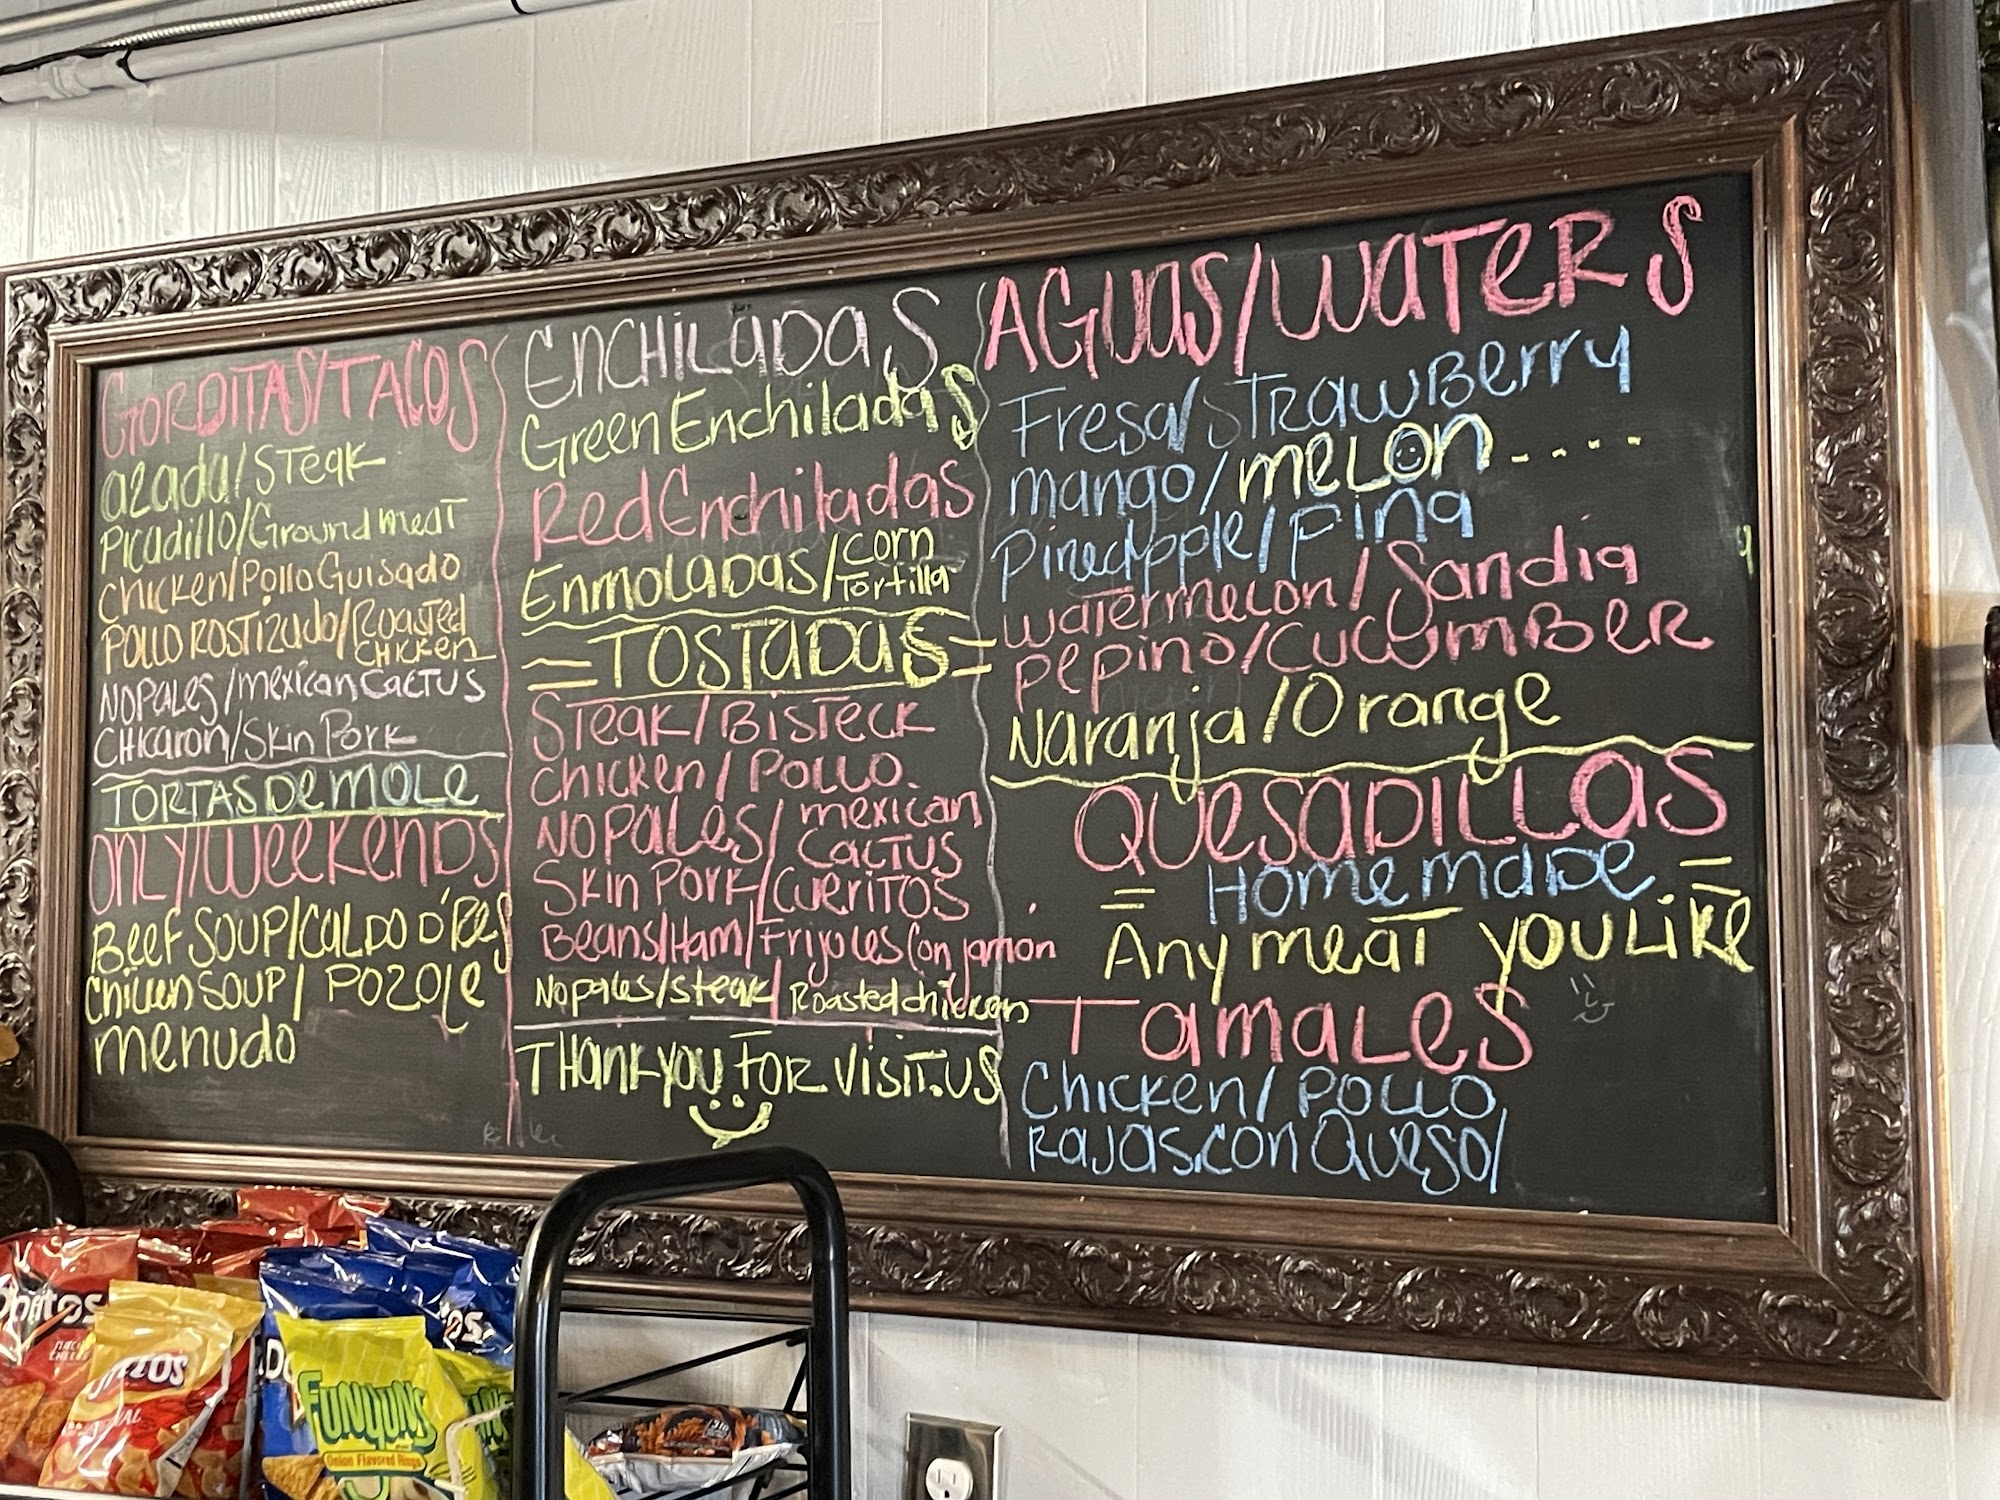 GORDITAS/TACOS
azada/STeak
Picadillo/Ground meat
Chicken/Pollo Guisado
POLLO ROSTIZADO/Roasted
CHICKEN
NOPALES/mexican CaCTUS
CHICARON/Skin Pork
TORTAS De MOLE
ONLY/WeekenDS
Beef SOUP/CALDO D'Res
Chicken SOUP/ POZOLe
menudo
ENCHILADAS
Green Enchiladas
Red Enchiladas
ENMOLADAS/Corn
Tortilla
=TOSTADAS=
STeak/BISTeCK
Chicken/POLLO.
NOPALes/mexican
CaCTUS
Skin Pork/CueRiTOS
Beans/Ham/Frijoles Con jamon
Nopales/steak/Roasted chicken
THank you For visit.us
AGUAS/WATERS
Fresa/STRawBerry
mango/meLON.....
Pineapple/Piña
waTermelon/Sandia
Pepino/CUCUMBER
Naranja/Orange
QUeSADILLAS
=Home maDe=
Any meaT you Like
TamaLes
Chicken/POLLO
RaJas.con Queso/
Doritos
TACO
FRITOS
ORIGINAL
FUNYUNS
Onion Flavored Rings